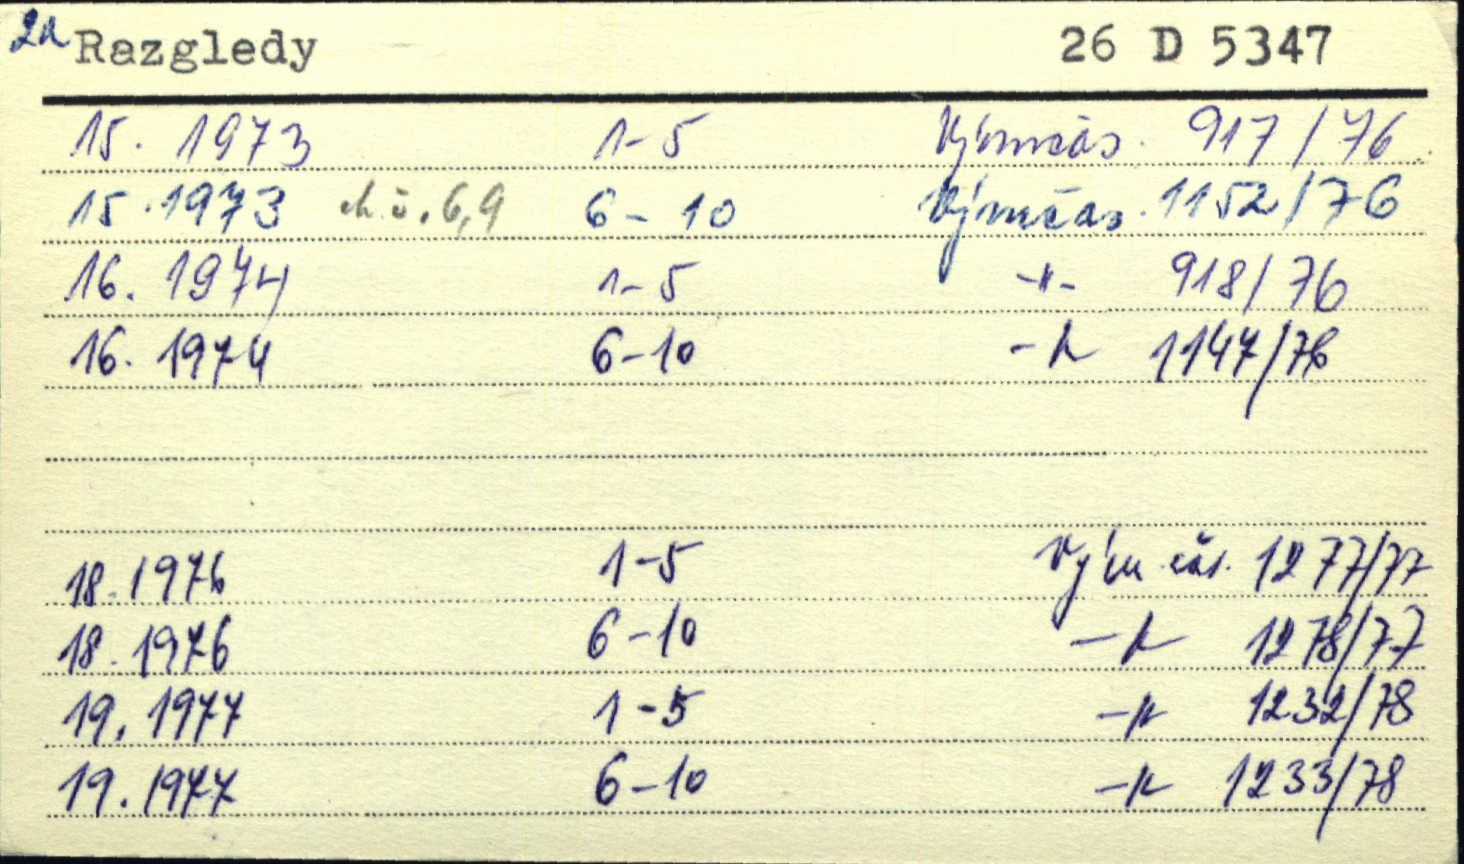 2a Razgledy 26 D 5347
15. 1973 1-5 Vým čas. 917/76
15. 1973 ch. č. 6,9 6-10 Vým čas. 1152/76
16. 1974 1-5 -"- 918/76
16. 1974 6-10 -"- 1147/76
18. 1976 1-5 Vým. čas. 1277/77
18. 1976 6-10 -"- 1278/77
19. 1977 1-5 -"- 1232/78
19. 1977 6-10 -"- 1233/78